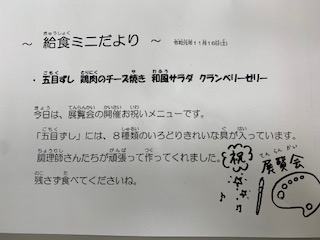 ～ 給食ミニだより ～ 令和元年11月16日(土)
・ 五目ずし 鶏肉のチーズ焼き 和風サラダ クランベリーゼリー
今日は、展覧会の開催お祝いメニューです。
「五目ずし」には、8種類のいろどりきれいな具が入っています。
調理師さんたちが頑張って作ってくれました。
残さず食べてくださいね。
祝
展覧会